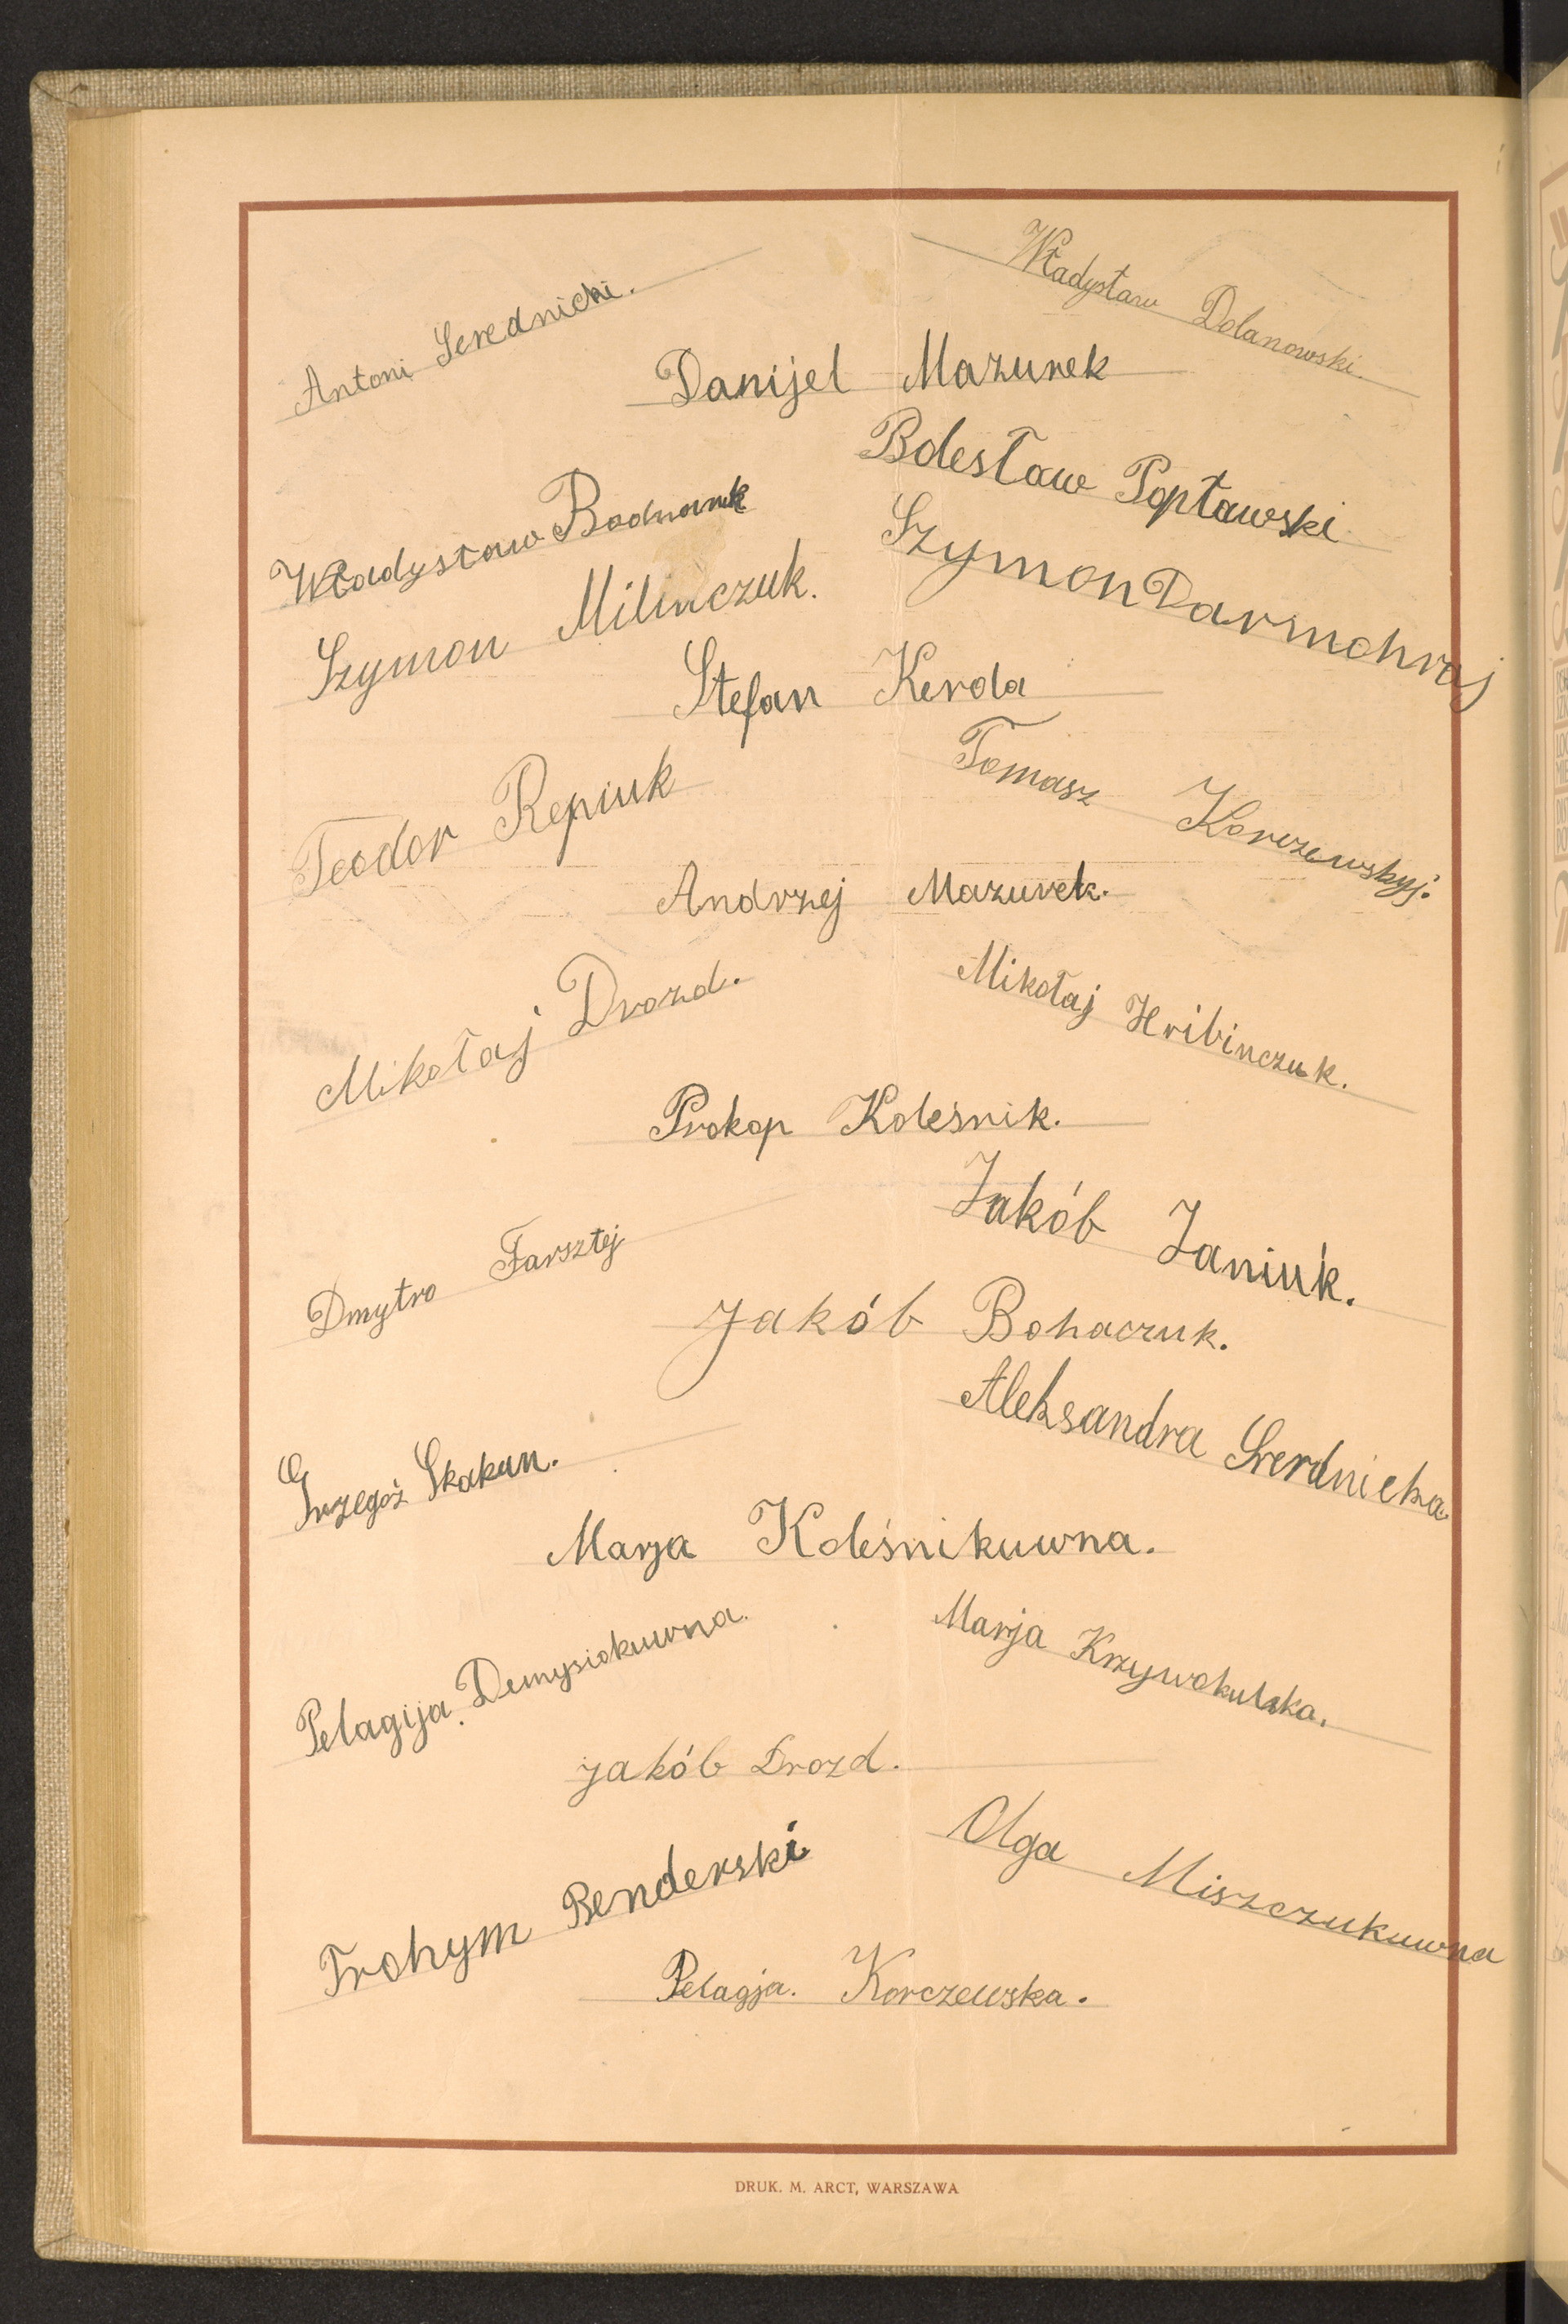 Antoni Serednicki.
Władysław Dolanowski.
Danijel Mazurek
Bolesław Popławski
Władysław Bodnaruk
Szymon Darmohraj
Szymon Milinczuk.
Stefan Kerda
Tomasz Korczewskyj.
Teodor Repiuk
Andrzej Mazurek.
Mikołaj Hribinczuk.
Mikołaj Drozd.
Prokop Koleśnik.
Jakób Janiuk.
Dmytro Farsztej
Jakób Bohaczuk.
Aleksandra Srerdnicka
Grzegoż Skakun.
Marja Koleśnikuwna.
Marja Krzywokulska.
Pelagija Demysiokuwna.
Jakób Drozd.
Olga Miszczukuwna
Trohym Benderski
Pelagja. Korczewska.
DRUK. M. ARCT, WARSZAWA